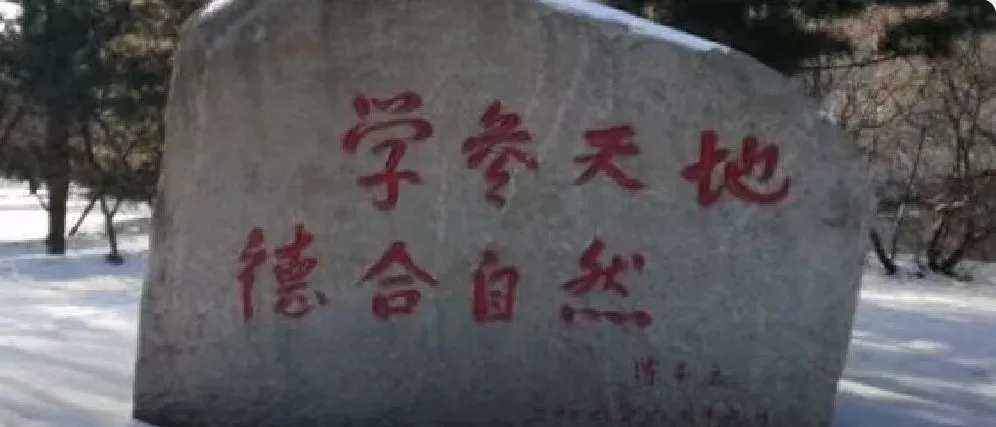 学参天地
德合自然